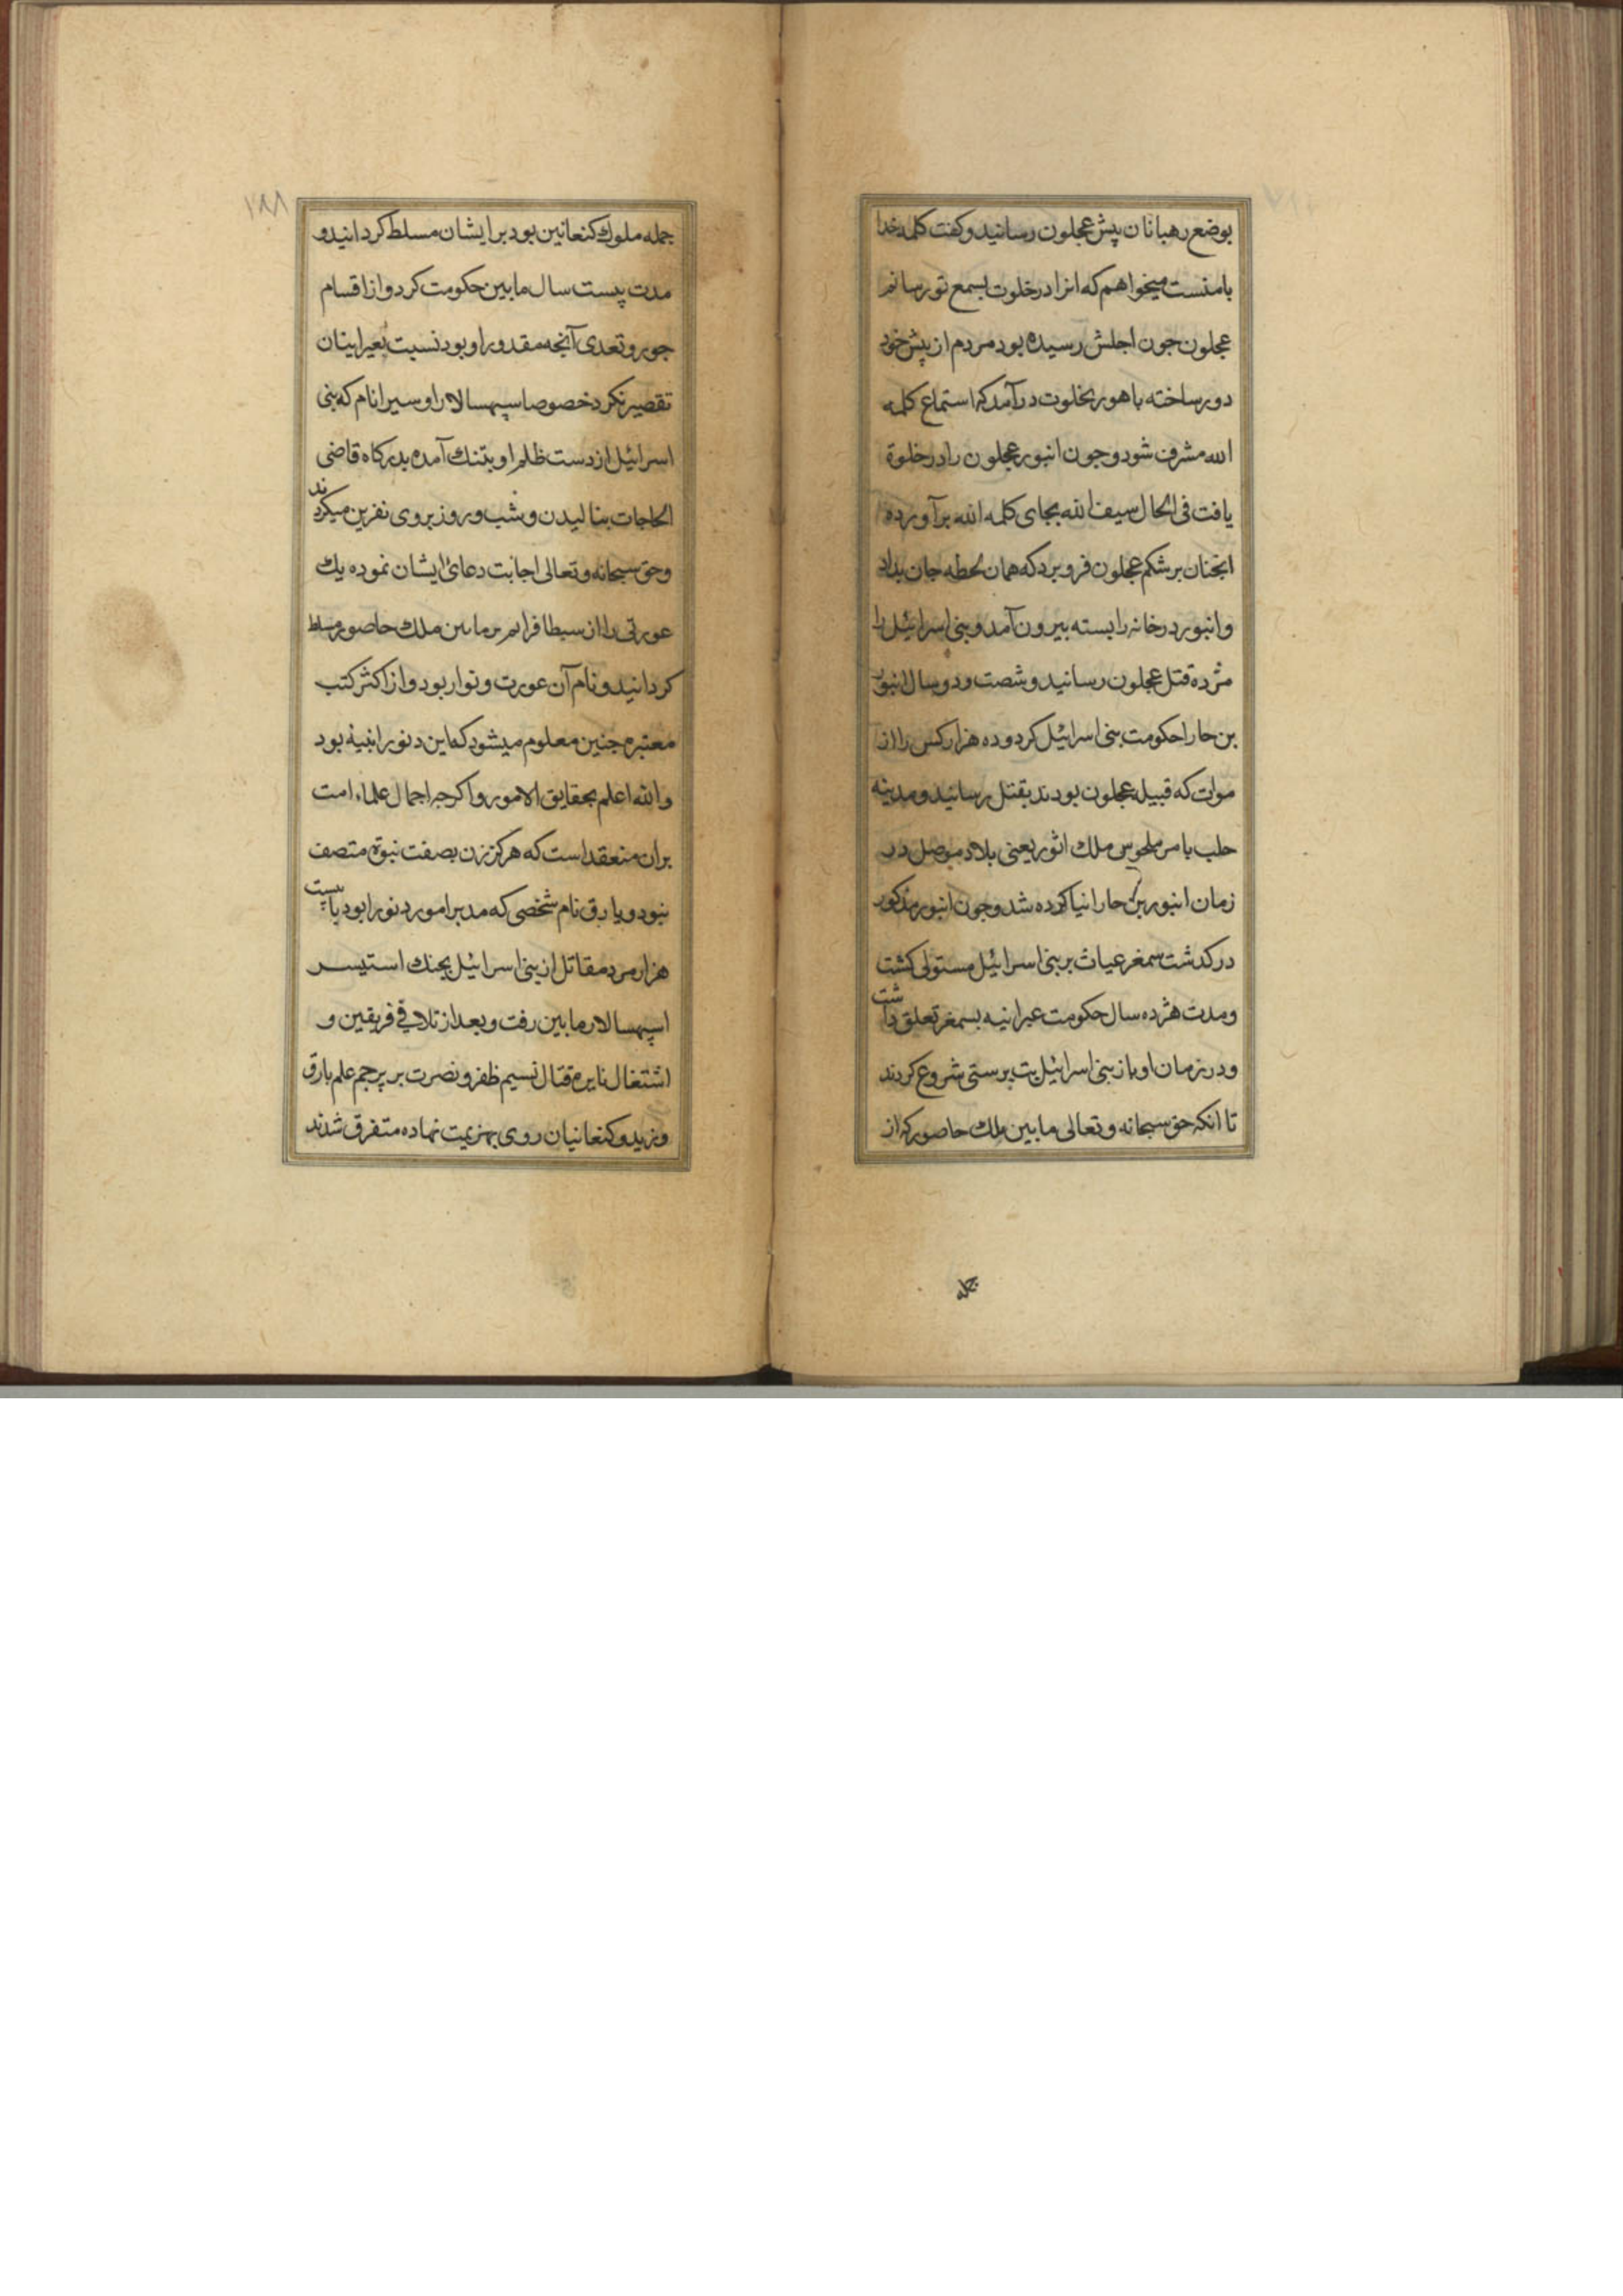 بوضع رهبانان پیش عجلون رسانید و کفت کلمه خدا
بامنست میخواهم که انرا در خلوت بسمع تو رسانم
عجلون جون اجلش رسیده بود مردم از پیش خود
دور ساخته با هور بخلوت درآمد که استماع کلمه
الله مشرف شود و جون انبور عجلون را در خلوة
یافت فی الحال سیف الله بجای کلمه الله برآورده
انجنان بر شکم عجلون فرو برد که همان لحطه جان بداد
وانبور در خانه را بسته بیرون آمد و بنی اسرائیل را
مژده قتل عجلون رسانید و شصت و دو سال انبور
بن حارا حکومت بنی اسرائیل کرد و ده هزار کس را از
موات که قبیله عجلون بودند بقتل رسانید و مدینه
حلب بامر ملحوس ملك اثور یعنی بلاد موصل در
زمان انبور بن حارا نیا کرده شد و جون انبور مذکور
در کدشت سمغر عیاث بر بنی اسرائیل مستولی کشت
و مدت هژده سال حکومت عبرانیه بسمغر تعلق داشت
و در زمان او باز بنی اسرائیل بت پرستی شروع کردند
تا انکه حق سبحانه و تعالی مابین ملك حاصور که از
جمله
۱۹۸
جمله ملوك کنعانین بود بر ایشان مسلط کردانید و
مدت پیست سال مابین حکومت کرد و از اقسام
جور و تعدی آنجه مقدور او بود نسبت بعبرانیان
تقصیر نکرد خصوصا سپهسالار او سیرا نام که بنی
اسرائیل از دست ظلم او بتنك آمده بدرکاه قاضی
الحاجات بنالیدن و شب و روز بروی نفرین میکردند
و حق سبحانه و تعالی اجابت دعائ ایشان نموده یك
عورتی را از سبط افرایم بر مابین ملك حاصور مسلط
کردانید و نام آن عورت ونوار بود و از اکثر کتب
معتبره جنین معلوم میشود که این دنورا نبیه بود
والله اعلم بحقایق الامور و اکرجه اجمال علماء امت
بران منعقد است که هرکز زن بصفت نبوة متصف
نبود و یارق نام شخصی که مدبر امور دنورا بود با پیست
هزار مرد مقاتل از بنی اسرائیل بجنك استیسر
اسپهسالار مابین رفت و بعد از تلاقی فریقین و
اشتغال نایره قتال نسیم ظفر و نصرت بر پرجم علم بارق
وزید و کنعانیان روی بهزیمت نهاده متفرق شدند